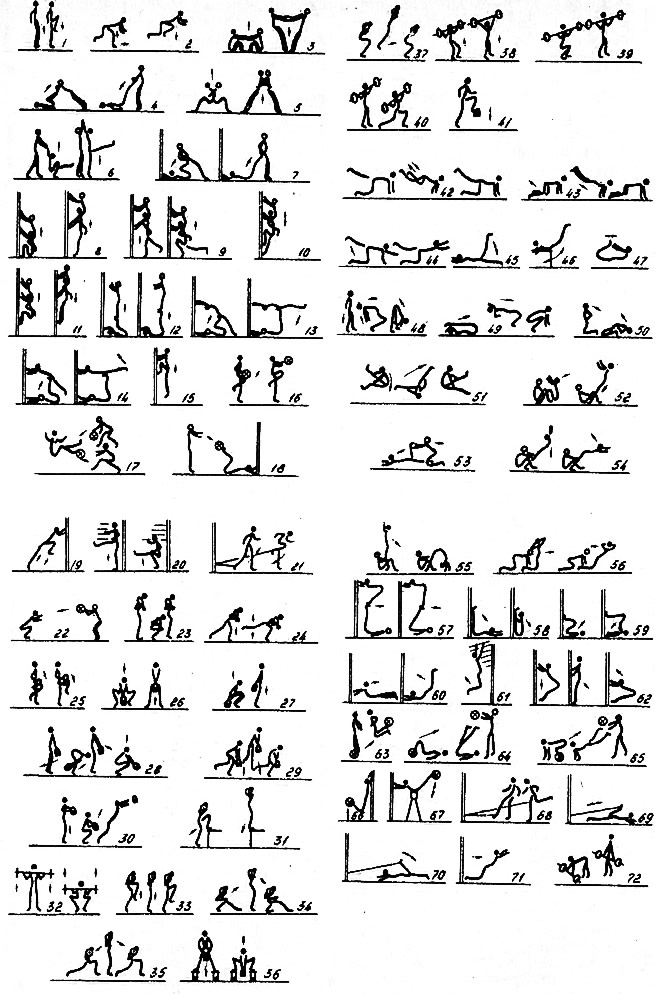 1 2 3
4 5
6 7
8 9 10
11 12 13
14 15 16
17 18
19 20 21
22 23 24
25 26 27
28 29
30 31
32 33 34
35 36
37 38 39
40 41
42 43
44 45 46 47
48 49 50
51 52
53 54
55 56
57 58 59
60 61 62
63 64 65
66 67 68 69
70 71 72